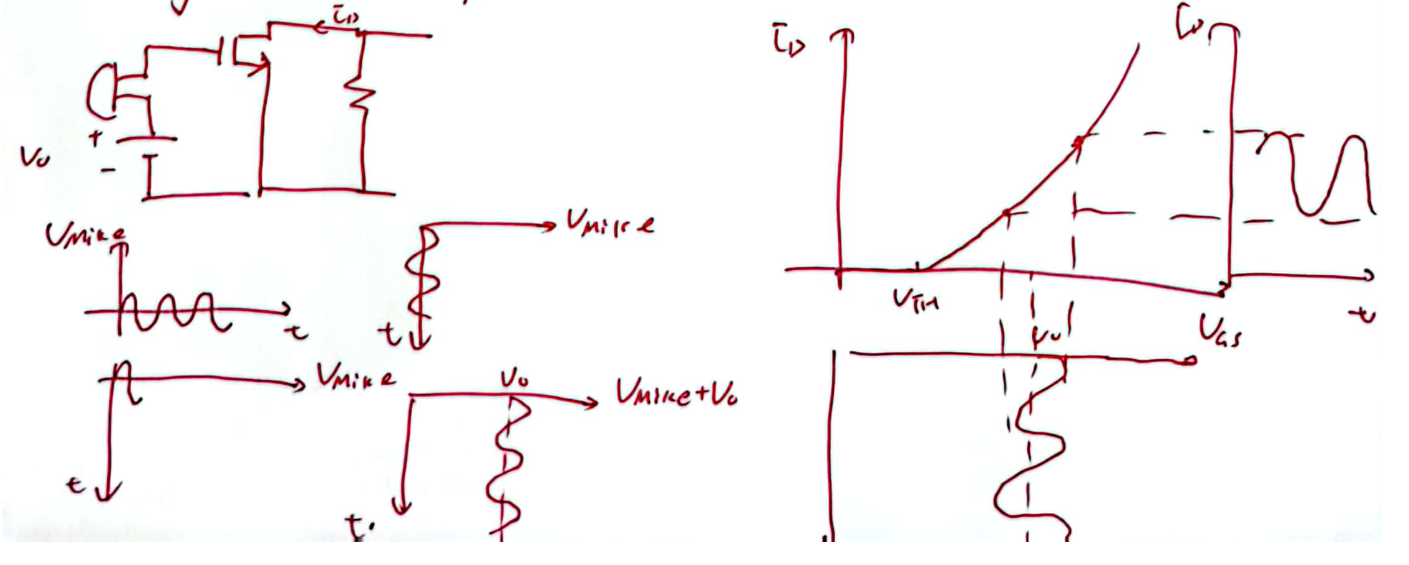 i_D
+
V0
-
VMike
t
VMike
t
VMike
t
V0
VMike+V0
t.
i_D
i_D
VTH
VGS
t
V0